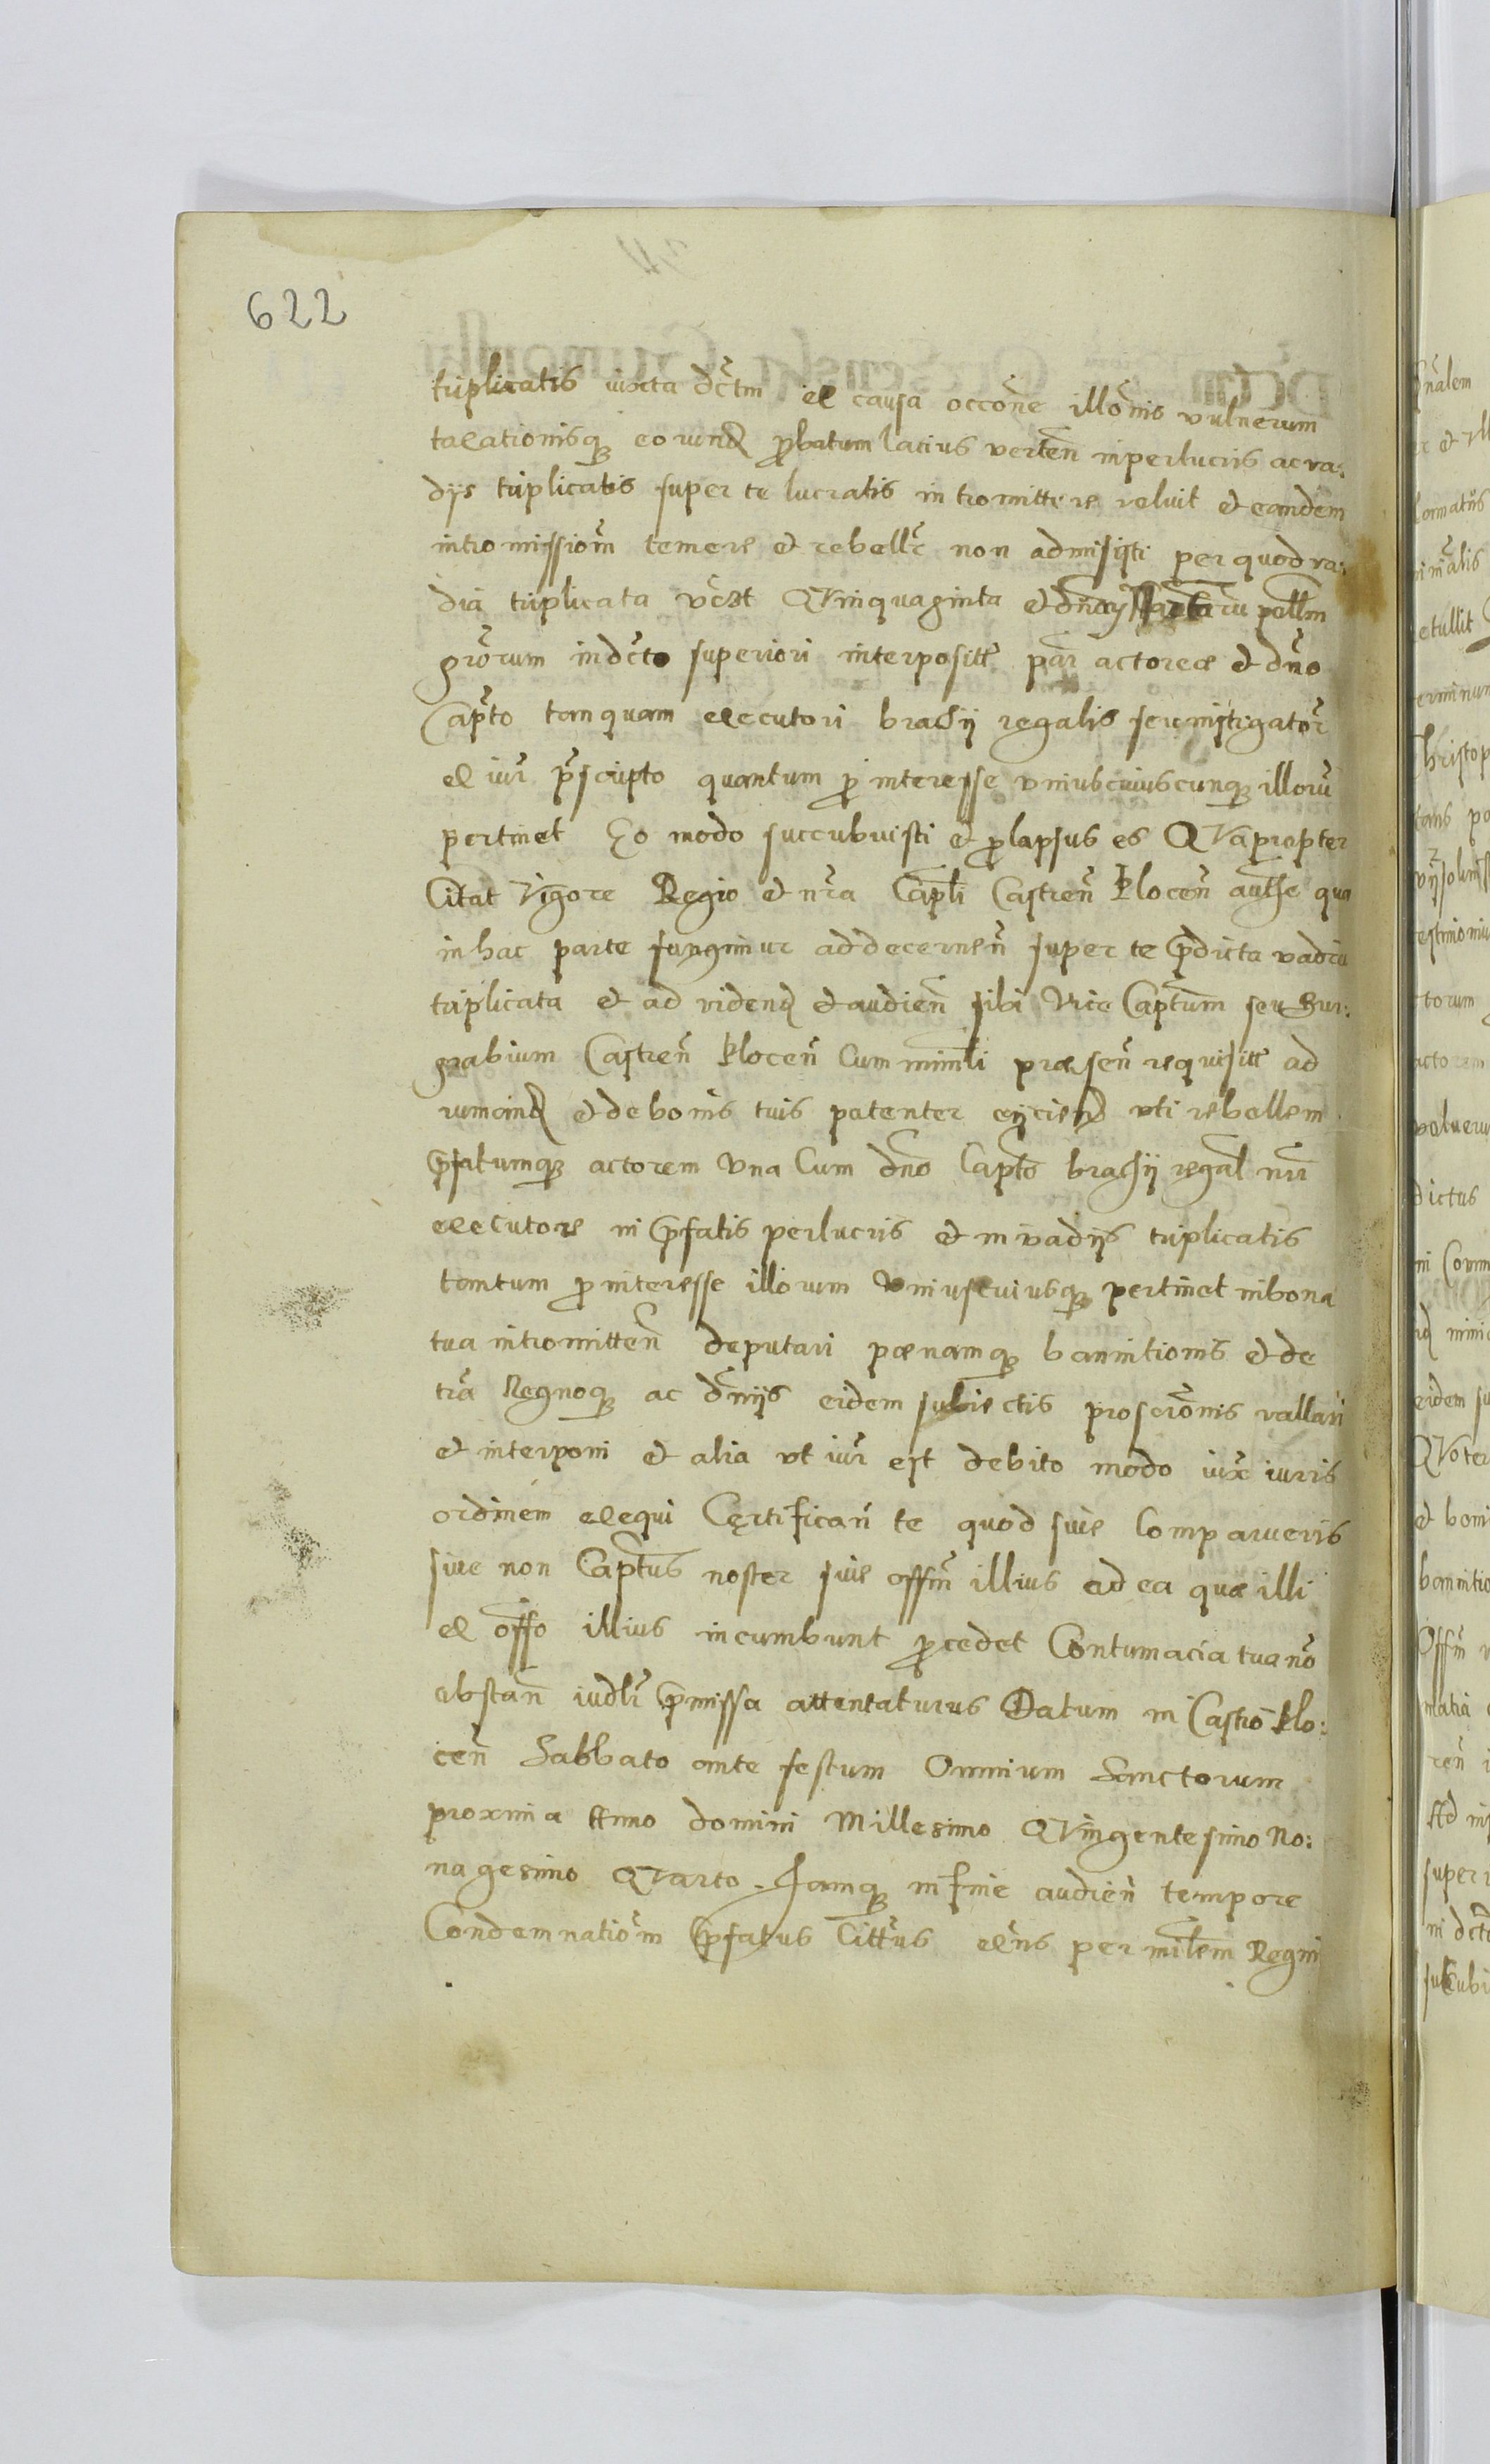 622
triplicatis iuxta dctm ex causa occone illonis vulnerum
taxationisq eorund probatum lacius verten in perlucris ac va:
dys triplicatis super te lucratis intromittere voluit et eandem
intromissiom temere et rebellr non admisisti per quod va:
dia triplicata vczt Qvinquaginta et pallm
grorum in dcto superiori interposite par actoreae et dno
Capto tanquam executori brachy regalis seu instigator
ex iur pscripto quantum p interesse vniuscuiuscunq illoru
pertinet Eo modo succubuisti et plapsus es Qvapropter
Citat vigore Regio et nra Capli Castren Plocen authe qua
in hac parte fungimur ad decernen super te pdicta vadia
triplicata et ad vidend et audien sibi Vice Captum seu Bur:
grabium Castren Plocen Cum minli praesen requisitt ad
rumand et de bonis tuis patenter eyciend vti rebellem
pfatumq actorem vna Cum dno Capto brachy regal nri
executore in pfatis perlucris et in vadys triplicatis
tantum p interesse illorum vniuscuiusq pertinet in bona
tua intromitten deputari poenamq bannitionis et de
tra Regnoq ac dmys eidem subiectis proscronis vallari
et interponi et alia vt iur est debito modo iux iuris
ordinem exequi Certifican te quod sive Comparueris
sive non Captus noster sive offm illius ad ea quae illi
ex offo illius incumbunt pcedet Contumacia tua no
obstan iudlr pmissa attentaturus Datum in Castro Plo:
cen Sabbato ante festum Omnium Sanctorum
proximo Anno domini Millesimo Qvingentesimo No:
nagesimo Qvarto. Iamq in fine audien tempore
Condemnatiom pfatus Cittus exns per minlem Regni